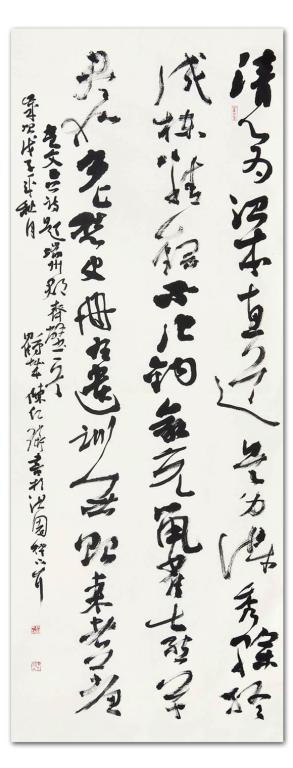 清心為治本直道是身謀秀幹終
成棟精鋼不作鉤倉充鼠雀喜草
盡兔狐愁史冊有遺訓毋貽來者羞
包文正公詩題端州郡齋壁一首
歲次戊子年秋月 陳仁 書於